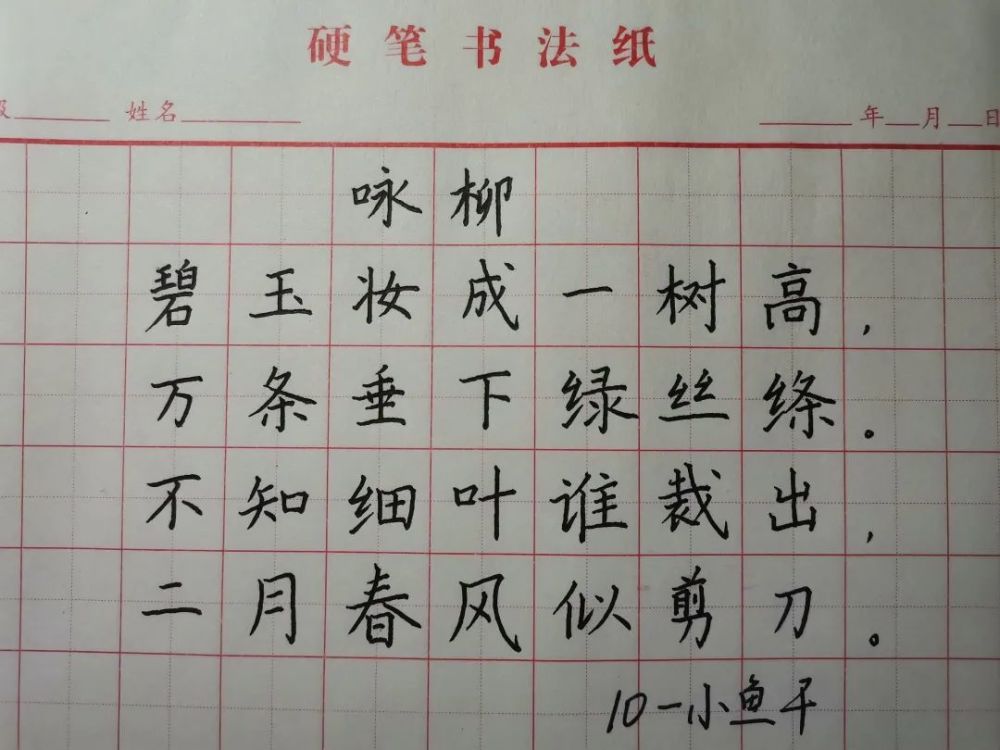 硬笔书法纸
级 姓名 年 月 日
咏柳
碧玉妆成一树高，
万条垂下绿丝绦。
不知细叶谁裁出，
二月春风似剪刀。
10一小鱼干